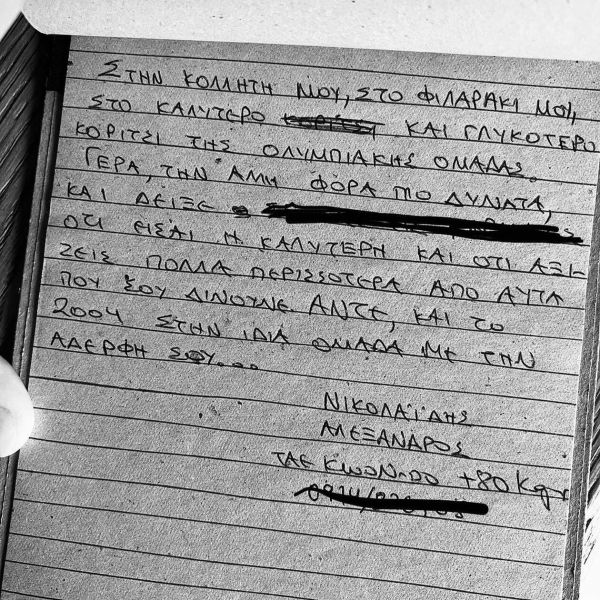 ΣΤΗΝ ΚΟΛΛΗΤΗ ΜΟΥ, ΣΤΟ ΦΙΛΑΡΑΚΙ ΜΟΥ,
ΣΤΟ ΚΑΛΥΤΕΡΟ ΚΑΙ ΓΛΥΚΟΤΕΡΟ
ΚΟΡΙΤΣΙ ΤΗΣ ΟΛΥΜΠΙΑΚΗΣ ΟΜΑΔΑΣ.
ΓΕΡΑ, ΤΗΝ ΑΛΛΗ ΦΟΡΑ ΠΙΟ ΔΥΝΑΤΑ,
ΚΑΙ ΔΕΙΞΕ
ΟΤΙ ΕΙΣΑΙ Η ΚΑΛΥΤΕΡΗ ΚΑΙ ΟΤΙ ΑΞΙ-
ΖΕΙΣ ΠΟΛΛΑ ΠΕΡΙΣΣΟΤΕΡΑ ΑΠΟ ΑΥΤΑ
ΠΟΥ ΣΟΥ ΔΙΝΟΥΝΕ. ΑΝΤΕ, ΚΑΙ ΤΟ
2004 ΣΤΗΝ ΙΔΙΑ ΟΜΑΔΑ ΜΕ ΤΗΝ
ΑΔΕΡΦΗ ΣΟΥ...
ΝΙΚΟΛΑΪΔΗΣ
ΑΛΕΞΑΝΔΡΟΣ
ΤΑΕ ΚWΟΝ-DO +80 Kgr